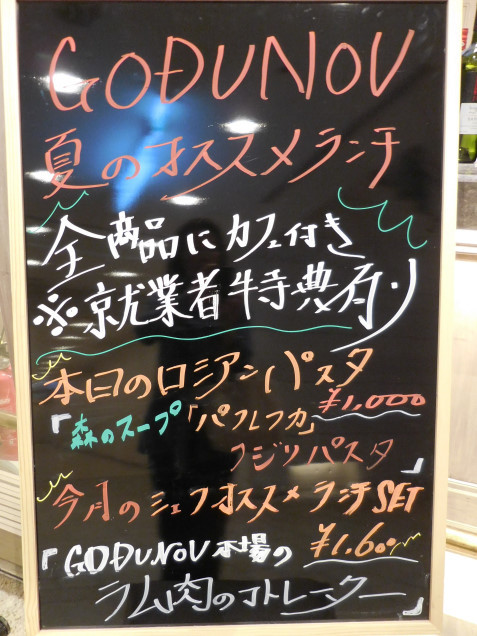 GODUNOV
夏のオススメランチ
全商品にカフェ付き
※就業者特典有り
本日のロシアンパスタ
¥1.000
『森のスープ「パフレフカ」
フジリパスタ』
今月のシェフオススメランチSET
¥1.600
『GODUNOV市場の
ラム肉のコトレーター』